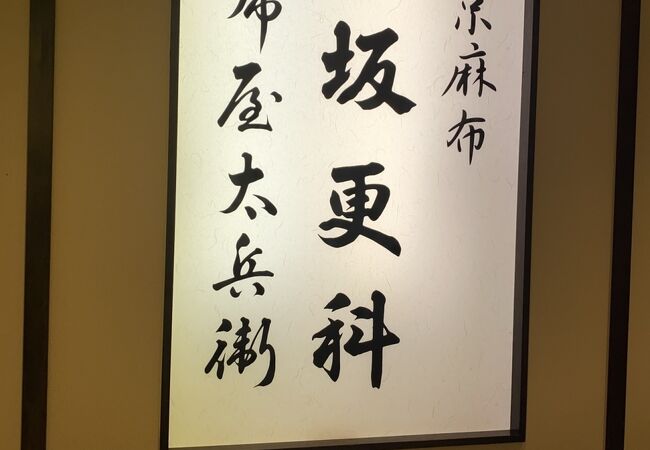 京麻布
坂更科
布屋太兵衛